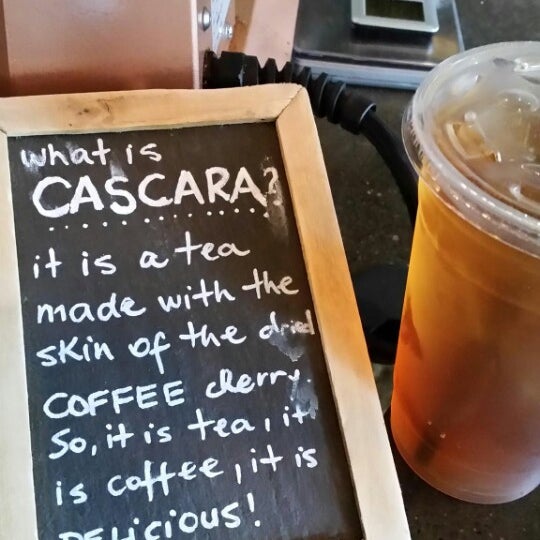 what is
CASCARA?
it is a tea
made with the
skin of the dried
COFFEE cherry.
So, it is tea, it
is coffee, it is
DELICIOUS!